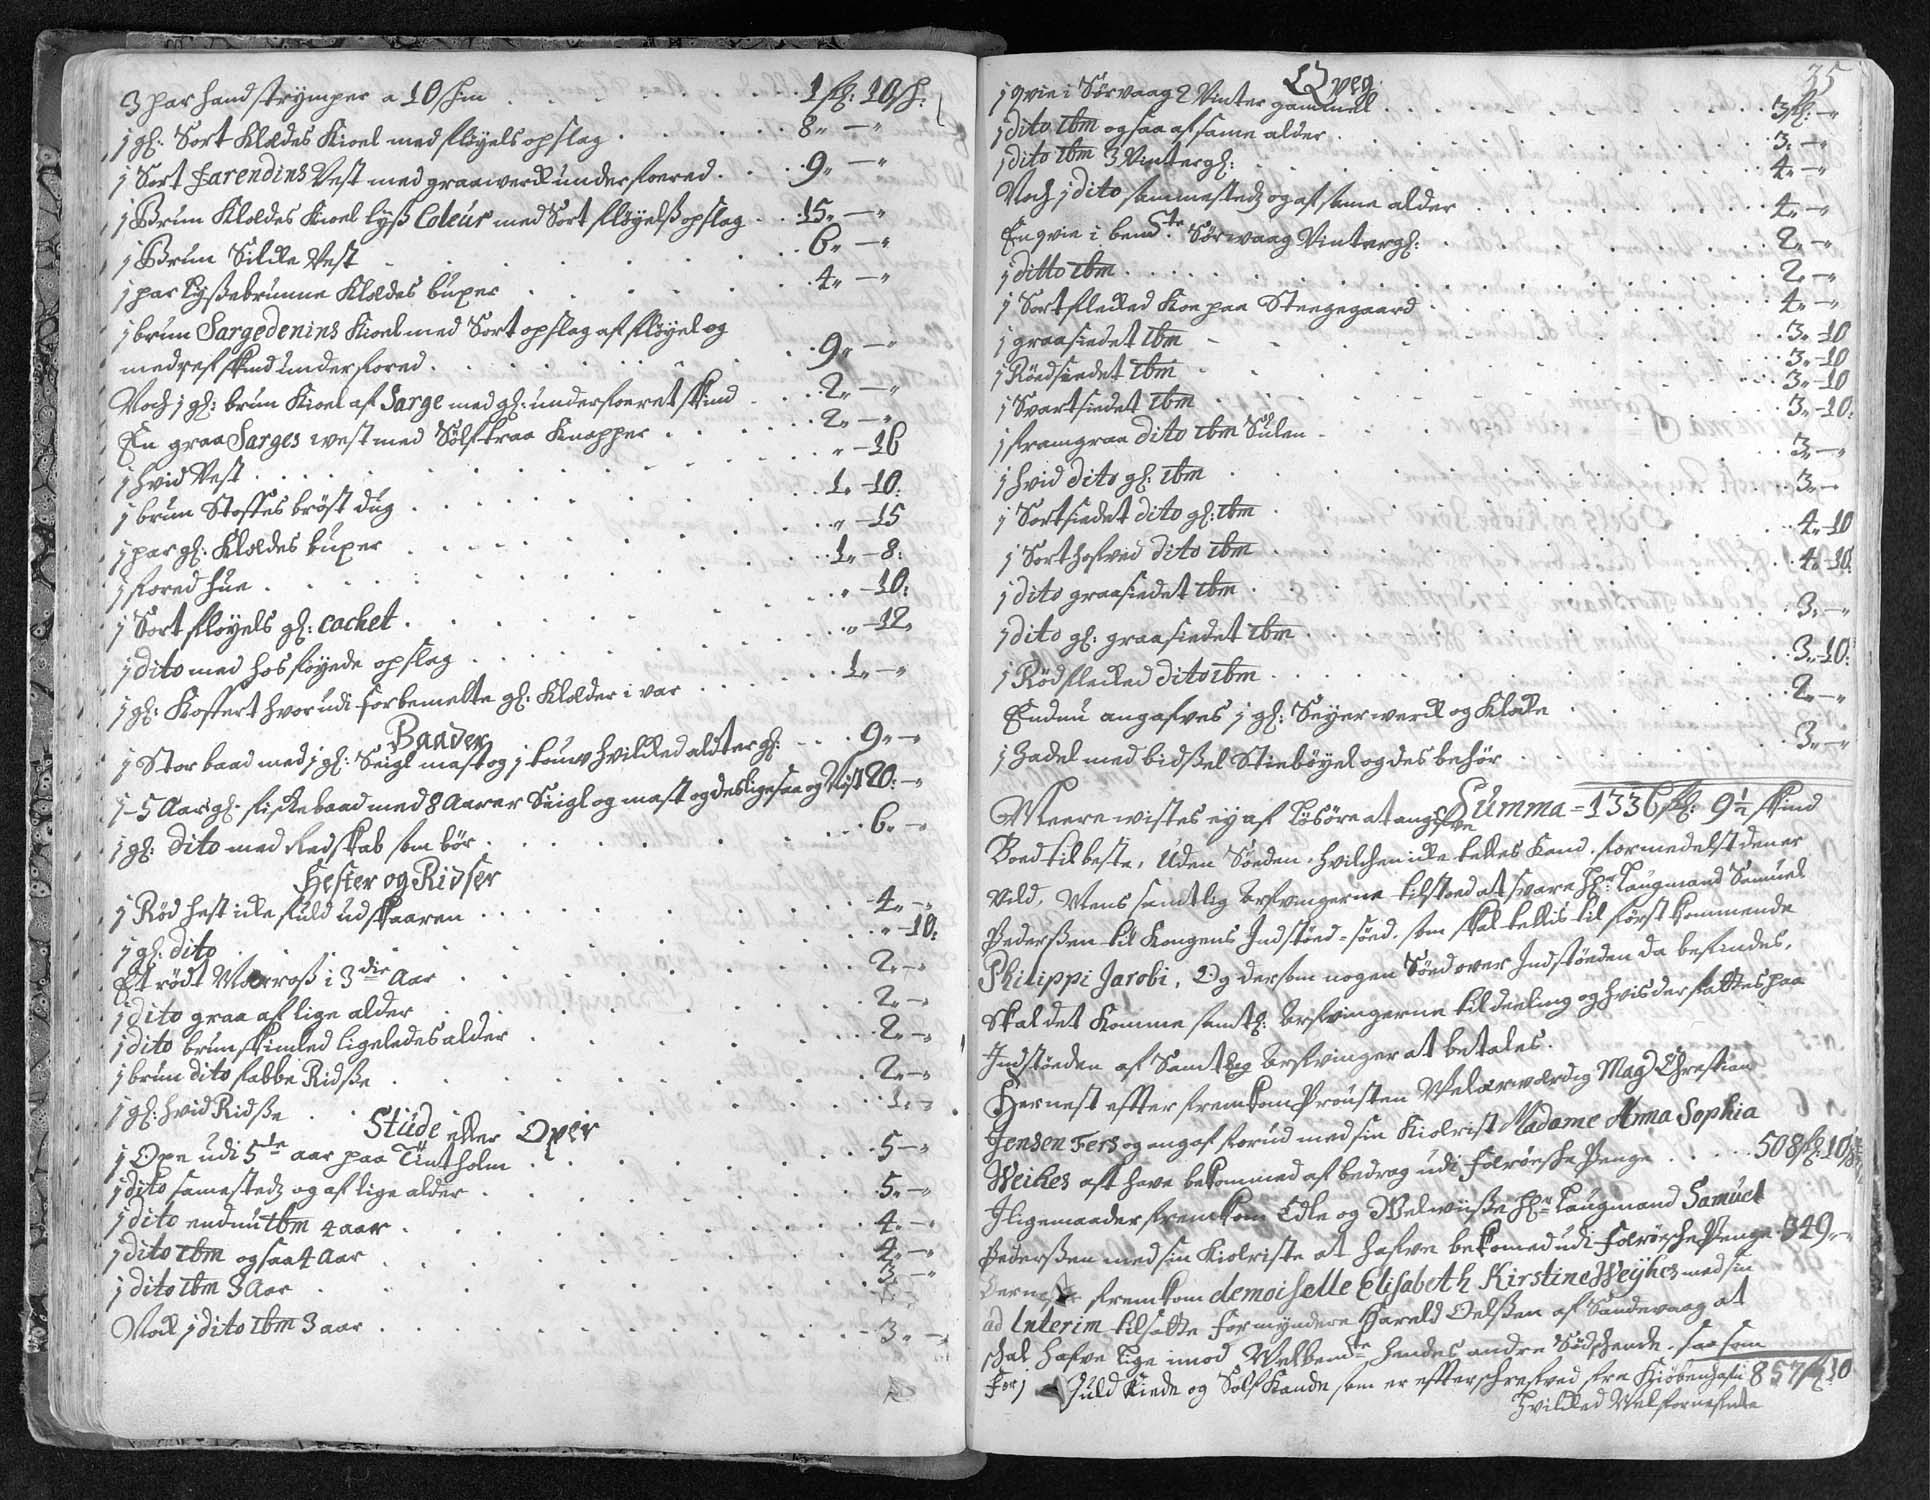 3 par handstrymper a 10 skin . . . 1 fl: 10 sh:
1 gl: Sort Klædes Kioel med fløyels opslag . . . 8 „ — „
1 Sort Farendins Vest med graaverk underfoered . . . 9 „ — „
1 Brun Klædes Kioel lyß Coleur med Sort fløyelß opslag . . 15 „ — „
1 Brun Silke Vest . . . 6 „ — „
1 par lysßebrunne Klædes buxer . . . 4 „ — „
1 brun Sargedenins Kioel med Sort opslag af fløyel og
med ref skind underfored . . . 9 „ — „
Noch 1 gl: brun Kioel af Sarge med gl: underfoeret skind . . . 2 „ — „
En graa Sarges west med Sølftraa Knapper . . . 2 „ — „
1 hvid Vest . . . „ — 16
1 brun Stoffes brøst dug . . . 1 „ — 10:
1 par gl: Klædes buxer . . . „ — 15
1 fored hue . . . 1 „ — 8:
1 Sort fløyels gl: cachet . . . „ — 10:
1 dito med hosføyede opslag . . . „ — 12„
1 gl: Koffert hvor udi forbemelte gl: Klæder i var . . . 1 „ — „
Baader
1 Stor baad med 1 gl: Seigl mast og 1 touw hvilked aldter gl: . . . 9 „ — „
1 - 5 Aars gl: fiske baad med 8 Aarer Seigl og mast og desligesaa og Vist 20: — „
1 gl: dito med Redskab som bør . . . 6 „ — „
Hester og Ridser
1 Rød hest icke fuld udskaaren . . . 4 „ — „
1 gl: dito . . . „ — 10:
Et rødt Mærroß i 3die Aar . . . 2 „ — „
1 dito graa af lige alder . . . 2 „ — „
1 dito brunskimled ligeledes alder . . . 2 „ — „
1 brun dito fabbe Ridße . . . 2 „ — „
1 gl: hvid Ridße . . . 1 „ — „
Stude eller Oxer
1 Oxe udi 5te aar paa Tintholm . . . 5 — „
1 dito samestedz og af lige alder . . . 5 „ — „
1 dito endnu ibm 4 aar . . . 4 „ — „
1 dito ibm ogsaa 4 Aar . . . 4 „ — „
1 dito ibm 3 Aar . . . 3 „ — „
Nock 1 dito ibm 3 aar . . . 3 „ — „
35
Qveg
1 qvie i Sørvaag 2 Vinter gammel . . . 3 fl: — „
1 dito ibm ogsaa af same alder . . . 3: — „
1 dito ibm 3 Vinter gl: . . . 4 „ — „
Noch 1 dito sammestedz og af same alder . . . 4 „ — „
En qvie i bemte Sørwaag Vinter gl: . . . 2 „ — „
1 ditto ibm . . . 2 „ — „
1 Sortflecked Koe paa Steegegaard . . . 4 „ — „
1 graasiedet ibm . . . 3 „ — 10
1 Røedsiedet ibm . . . 3 „ — 10
1 Svartsiedet ibm . . . 3 „ — 10
1 framgraa dito ibm Sulen . . . 3 „ — 10:
1 hvid dito gl: ibm . . . 3 „ — „
1 Sortsiedet dito gl: ibm . . . 3 „ —
1 Sorthofved dito ibm . . . 4 „ 10
1 dito graasiedet ibm . . . 4 „ 10:
1 dito gl: graasiedet ibm . . . 3 „ — „
1 Rødflecked dito ibm . . . 3 „ — 10:
Endnu angafves 1 gl: Seyerwerck og Klocke . . . 2 „ — „
1 Zadel med bidßel Stiebøyel og des behør . . . 3 „ — „
Summa = 1336 fl: 9½ skind
Meere wistes ey af løsøre at angifve
Boed til beste, Uden Søeden, hvilchen icke telles kand, formedelst den er
Vild, Mens samtlig Arfvingerne tilstoed at svare Hr: Laugmand Samuel
Pederßen til Kongens Indstøed-søed, som skal tellis til først kommende
Philippi Jacobi, Og dersom nogen Søed over Indstøeden da befindes,
Skal det Komme samtl: Arfvingerne til deeling og hvis der fattes paa
Indstøeden af Samtlig Arfvinger at betales.
Hernest efter fremkom Prousten Velærværdig Mag: Chrestian
Jensen Fers og angaf forud med sin Kiærist Madame Anna Sophia
Weihes alt have bekommed af bedrag udi færøesche Penge . . . 508 fl: 10 sk:
Iligemaader fremkom Edle og Welwiiße Hr: Laugmand Samuel
Pederßen med sin Kiæriste at hafve bekomed udi færøesche Penge 349 „ — „
Dernest fremkom demoiselle Elisabeth Kirstine Weyhes med sin
ad Interim tilsatte formyndere Hareld Oelßen af Sandevaag at
skal hafve lige imod Velbemte hendes andre Sødschende, saa som
for 1 Guld Kiede og Sølf Kande som er efter schrefved fra Kiøbenhafn 857 fl: 10
hvilked Velfornefnte